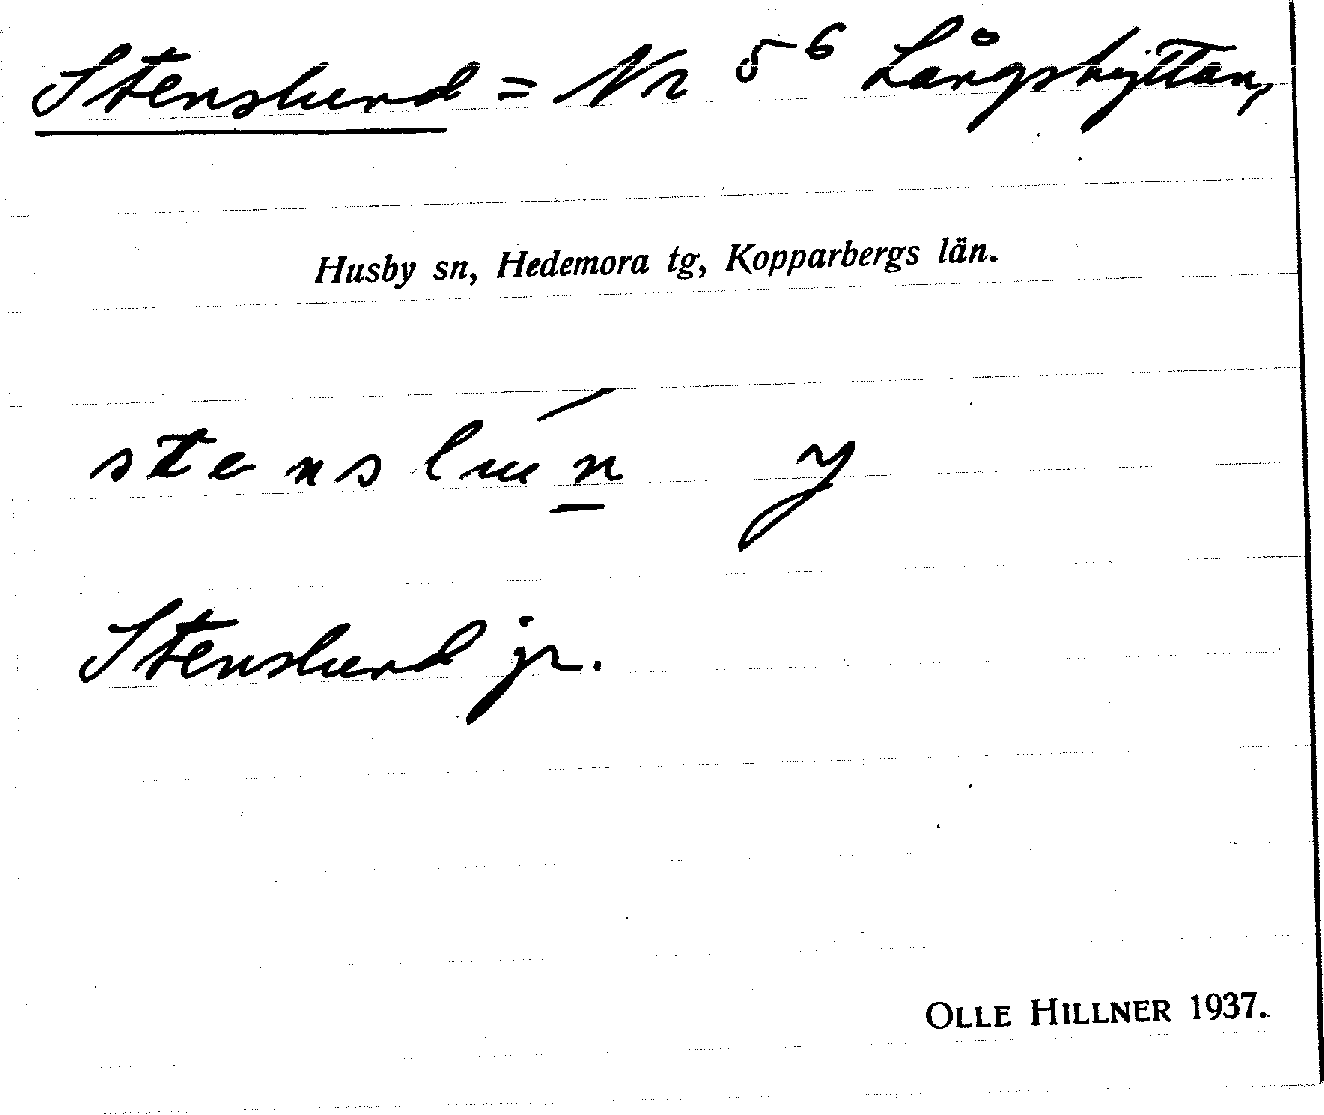 Stenslund = Nr 5⁶ Långshyttan,
Husby sn, Hedemora tg, Kopparbergs län.
stenslun
Stenslund jr.
OLLE HILLNER 1937.